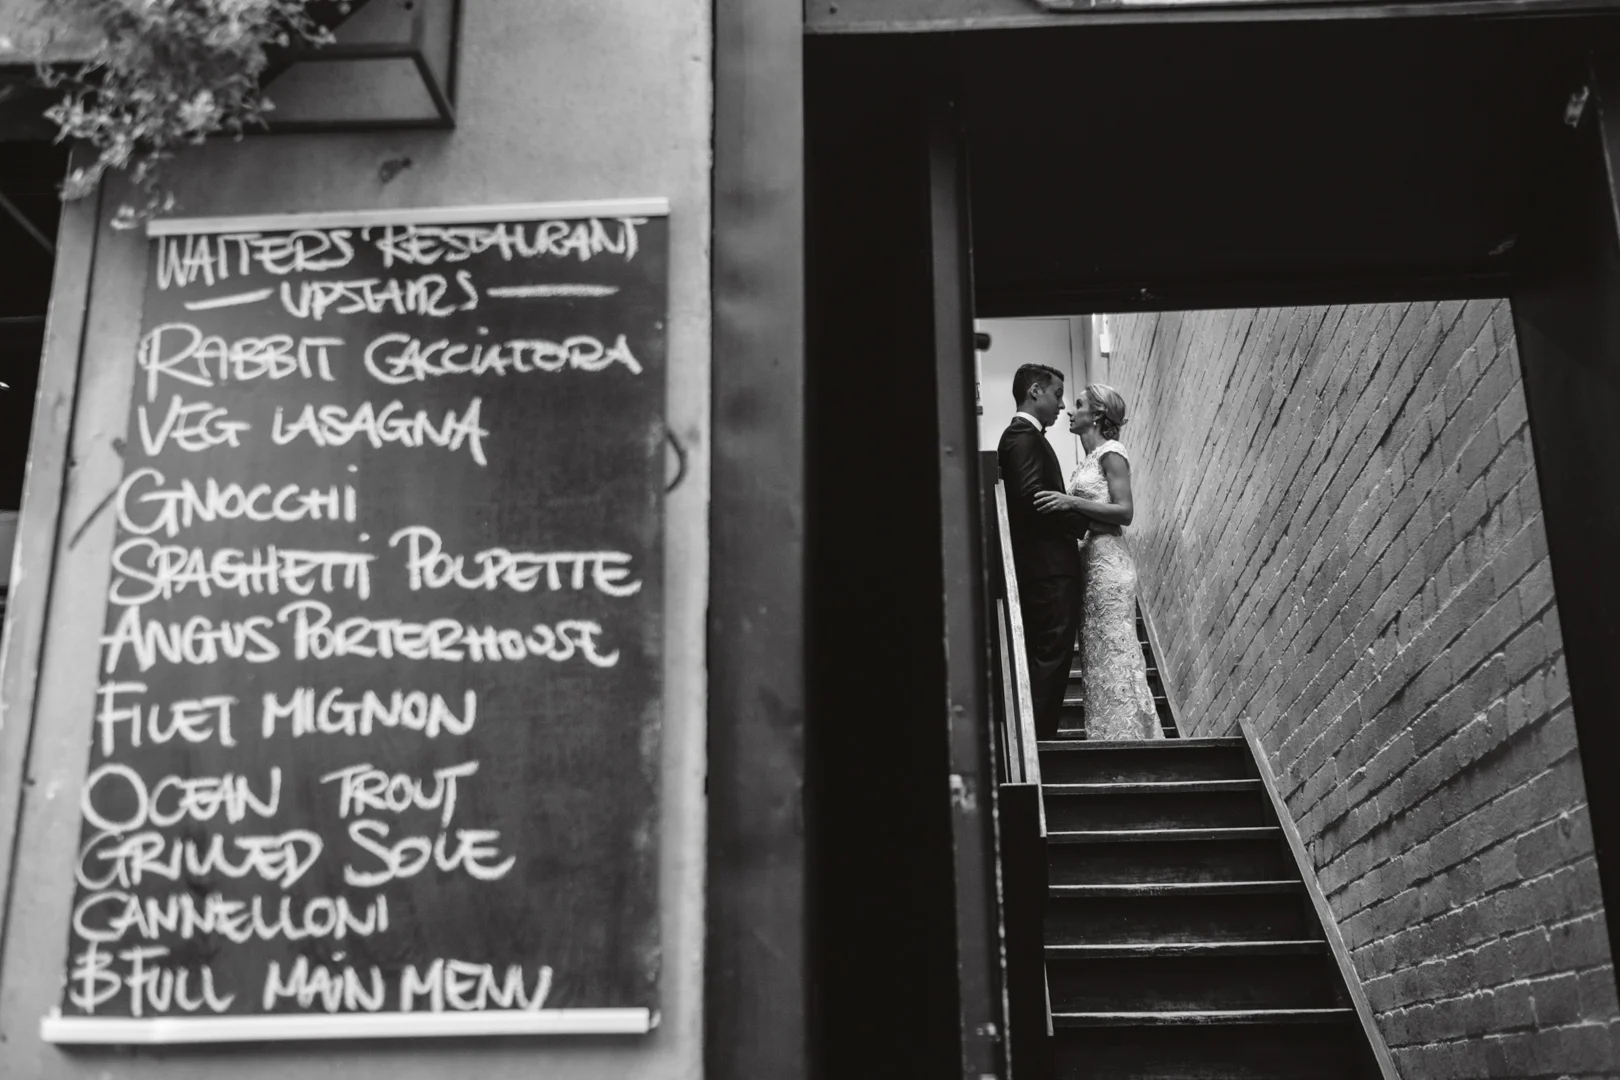 WAITERS RESTAURANT
— UPSTAIRS —
RABBIT CACCIATORA
VEG LASAGNA
GNOCCHI
SPAGHETTI POLPETTE
ANGUS PORTERHOUSE
FILET MIGNON
OCEAN TROUT
GRILLED SOLE
CANNELLONI
& FULL MAIN MENU